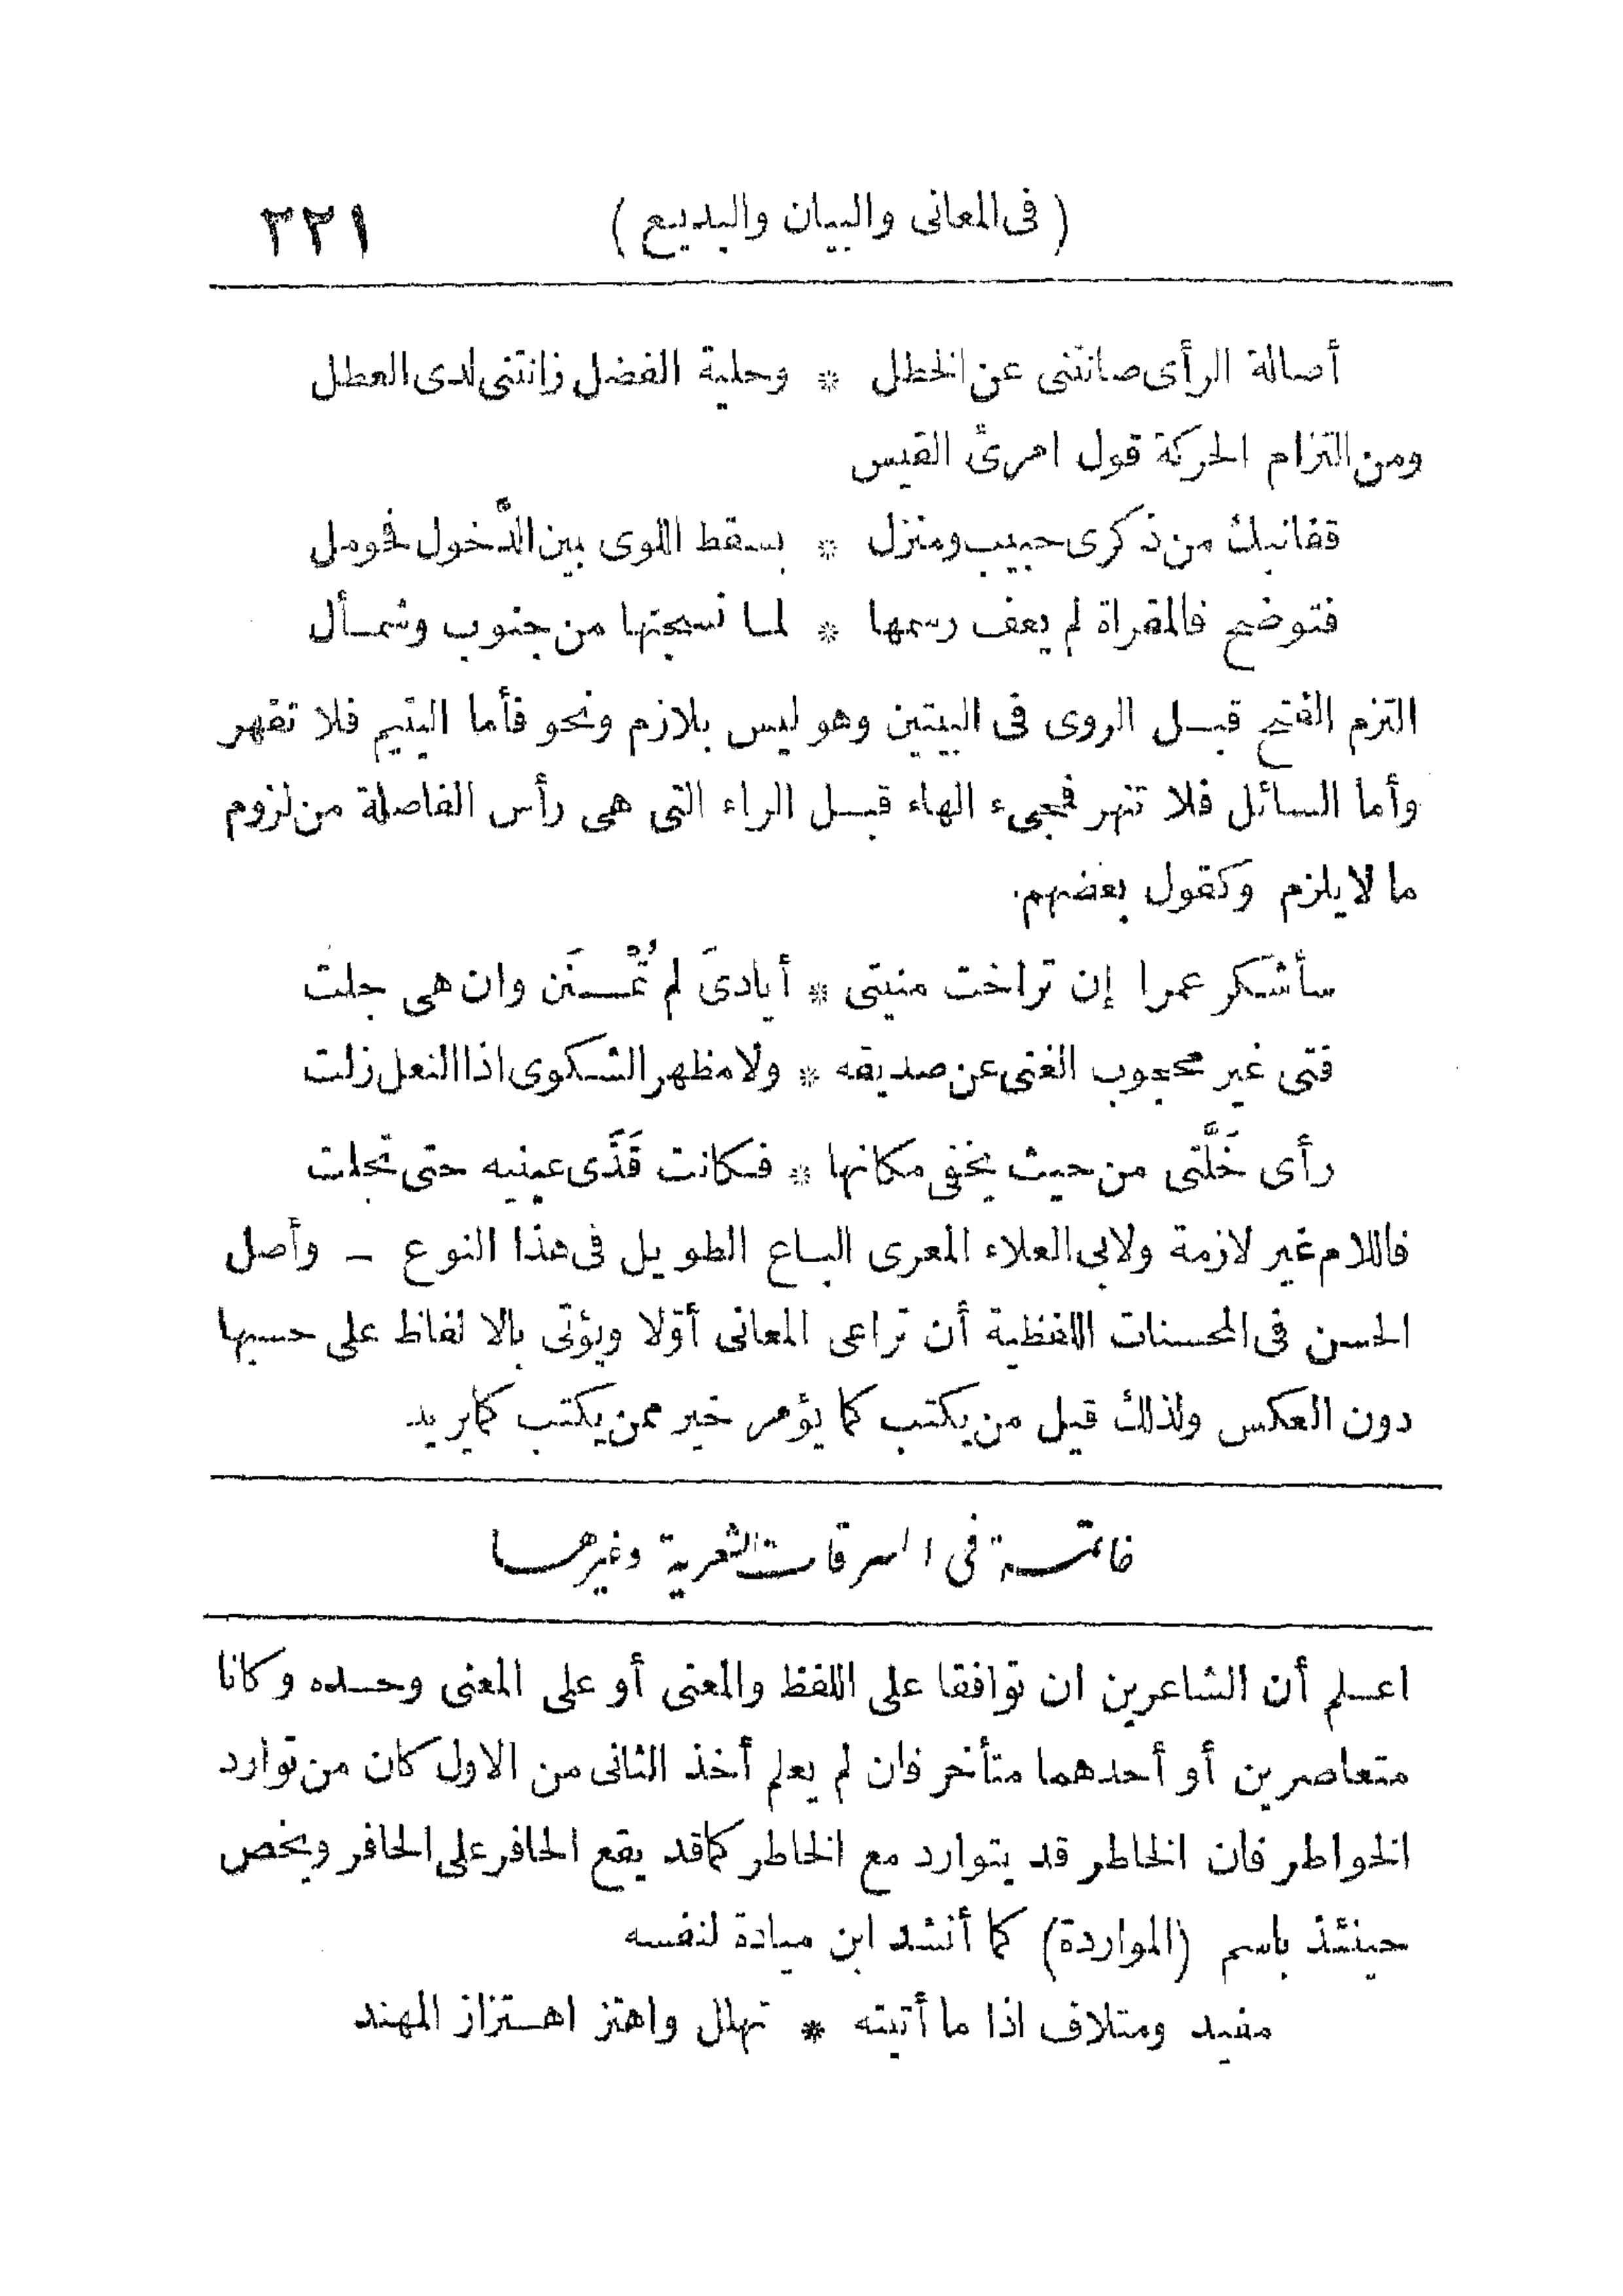 (فى المعانى والبيان والبديع) ٢٢١
أصالة الرأى صانتنى عن الخطل * وحلية الفضل زانتنى لدى العطل
ومن التزام الحركة قول امرئ القيس
قفانبك من ذكرى حبيب ومنزل * بسقط اللوى بين الدَّخول فحومل
فتوضح فالمقراة لم يعف رسمها * لما نسجتها من جنوب وشمأل
التزم الفتح قبل الروى فى البيتين وهو ليس بلازم ونحو فأما اليتيم فلا تقهر
وأما السائل فلا تنهر فمجىء الهاء قبل الراء التى هى رأس الفاصلة من لزوم
ما لا يلزم وكقول بعضهم
سأشكر عمرا إن تراخت منيتى * أيادىَ لم تُمْنَن وان هى جلت
فتى غير محجوب الغنى عن صديقه * ولا مظهر الشكوى اذا النعل زلت
رأى خَلَّتى من حيث يخفى مكانها * فكانت قَذَى عينيه حتى تجلت
فاللام غير لازمة ولابى العلاء المعرى الباع الطويل فى هذا النوع – وأصل
الحسن فى المحسنات اللفظية أن تراعى المعانى أوّلا ويؤتى بالالفاظ على حسبها
دون العكس ولذلك قيل من يكتب كما يؤمر خير ممن يكتب كما يريد
خاتمة فى السرقات الشعرية وغيرها
اعلم أن الشاعرين ان توافقا على اللفظ والمعنى أو على المعنى وحده وكانا
متعاصرين أو أحدهما متأخر فان لم يعلم أخذ الثانى من الاول كان من توارد
الخواطر فان الخاطر قد يتوارد مع الخاطر كما قد يقع الحافر على الحافر ويخص
حينئذ باسم (المواردة) كما أنشد ابن ميادة لنفسه
مفيد ومتلاف اذا ما أتيته * تهلل واهتز اهتزاز المهند